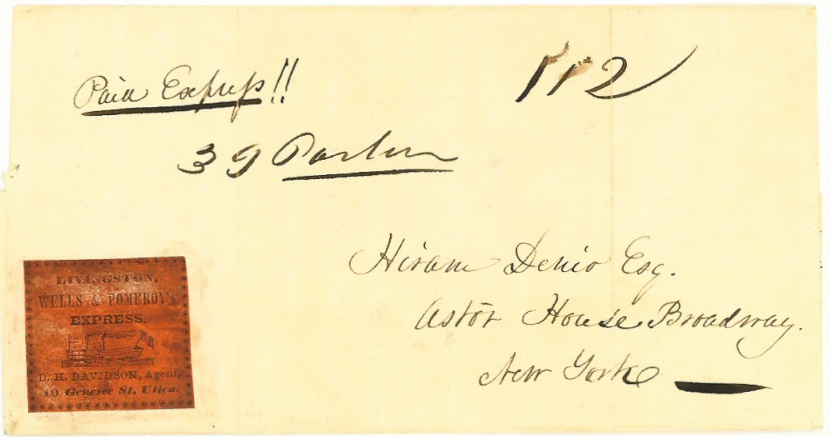 Paid Express!!
112
39 Parlor
Hiram Denio Esq.
Astor House Broadway.
New York
LIVINGSTON,
WELLS & POMEROY'S
EXPRESS,
D. H. DAVIDSON, Agent,
10 Genesee St. Utica.